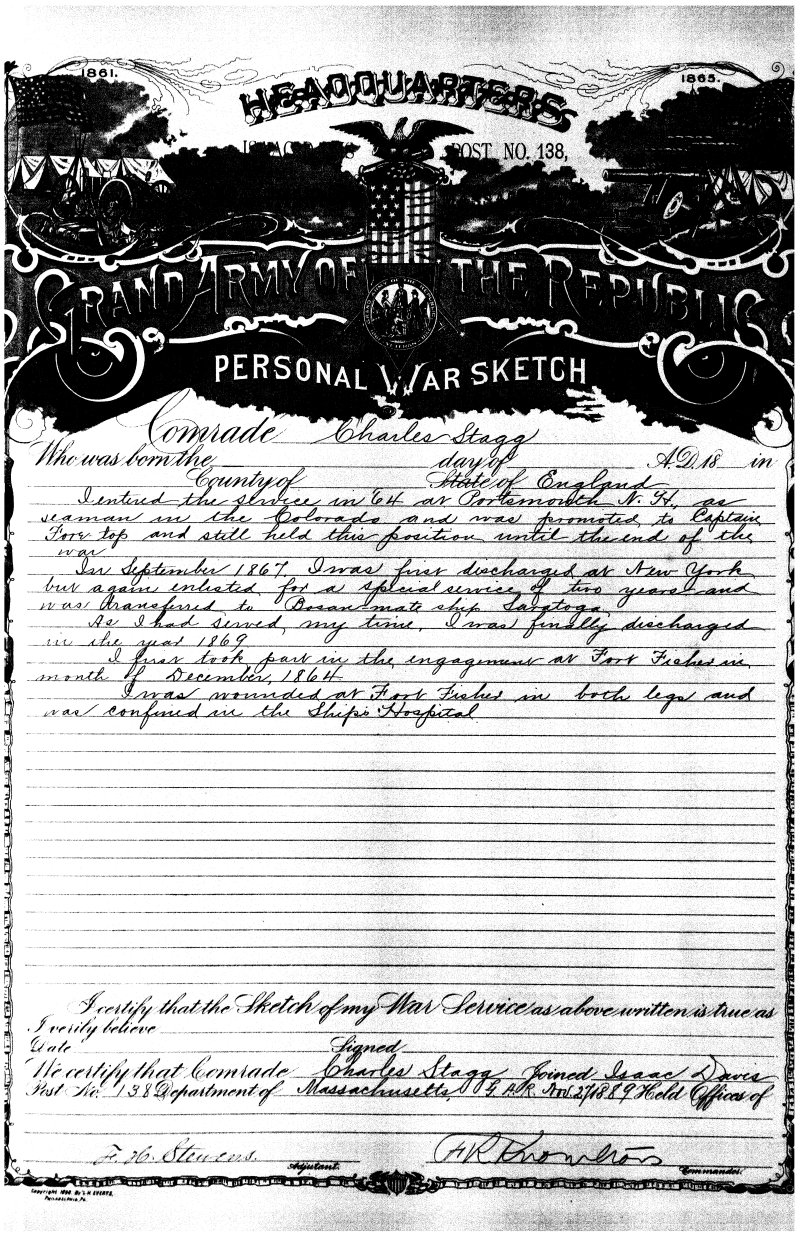 1861.
1865.
HEADQUARTERS
POST NO. 138,
GRAND ARMY OF THE REPUBLIC
PERSONAL WAR SKETCH
Comrade Charles Stagg
Who was born the day of A.D. 18 in
County of State of England
I entered the service in '64 at Portsmouth N. H., as
seaman in the Colorado and was promoted to Captain
Fore top and still held this position until the end of the
war
In September 1867 I was first discharged at New York
but again enlisted for a special service of two years and
was transferred to Bosan-mate ship Saratoga
As I had served my time, I was finally discharged
in the year 1869
I first took part in the engagement at Fort Fisher in
month of December, 1864
I was wounded at Fort Fisher in both legs and
was confined in the Ship's Hospital
I certify that the Sketch of my War Service as above written is true as
I verily believe
Date Signed
We certify that Comrade Charles Stagg Joined Isaac Davis
Post No. 138 Department of Massachusetts G. A. R. Nov. 27 1889 Held Offices of
F. H. Stevens
A K Knowlton
Adjutant.
Commander.
Copyright 1890 By L.H. EVERTS,
Philadelphia, Pa.